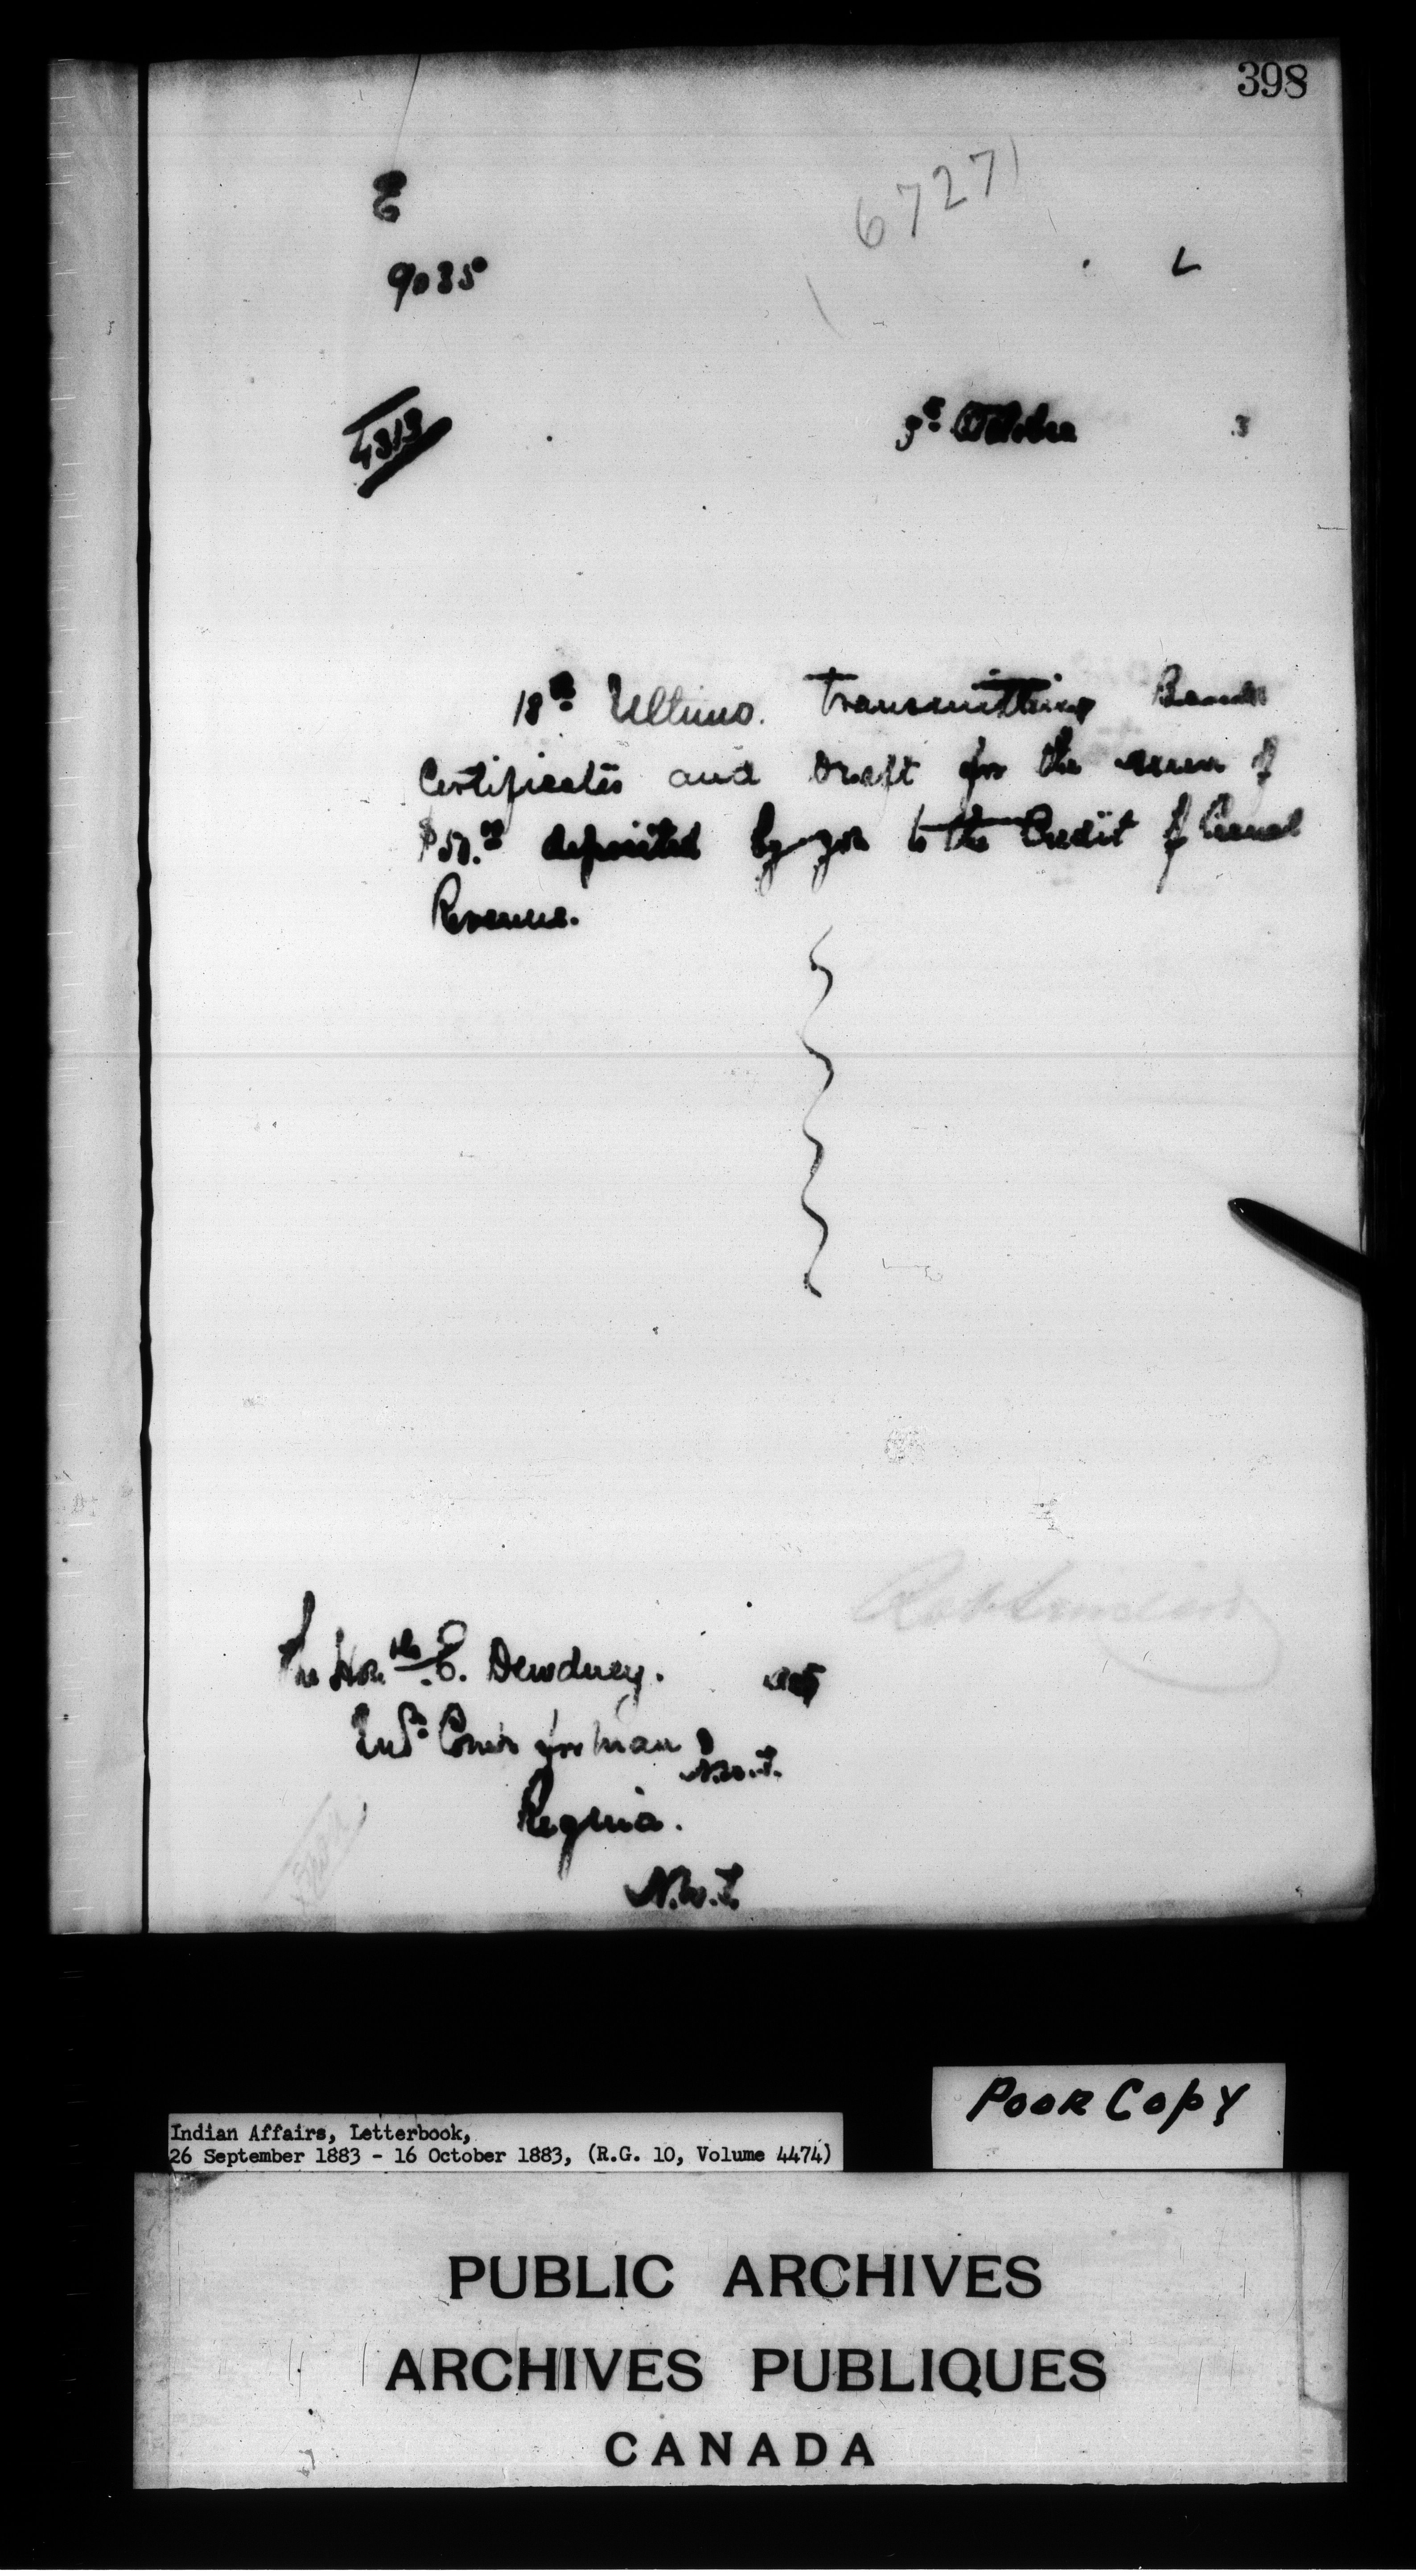 398
E
67271
9035
L
4313
5th October 3
18th Ultimo. Transmitting Bank
Certificates and Draft for the sum of
$50.00 deposited by you to the Credit of Casual
Revenue.
Rob Sinclair
The Honble E. Dewdney.
Ind. Comr for Man &
N.W.T.
Regina.
N.W.T.
POOR COPY
Indian Affairs, Letterbook,
26 September 1883 - 16 October 1883, (R.G. 10, Volume 4474)
PUBLIC ARCHIVES
ARCHIVES PUBLIQUES
CANADA